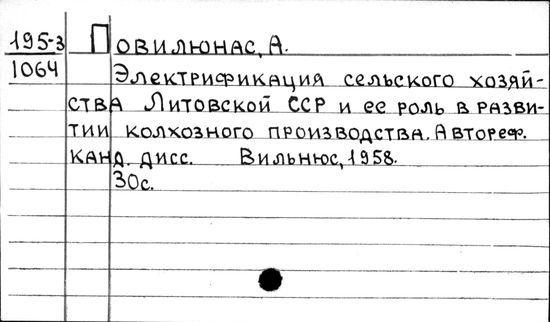 195-3 Повилюнас, А.
1064 Электрификация сельского хозяй-
ства Литовской ССР и ее роль в разви-
тии колхозного производства. Автореф.
канд. дисс. Вильнюс, 1958.
30с.